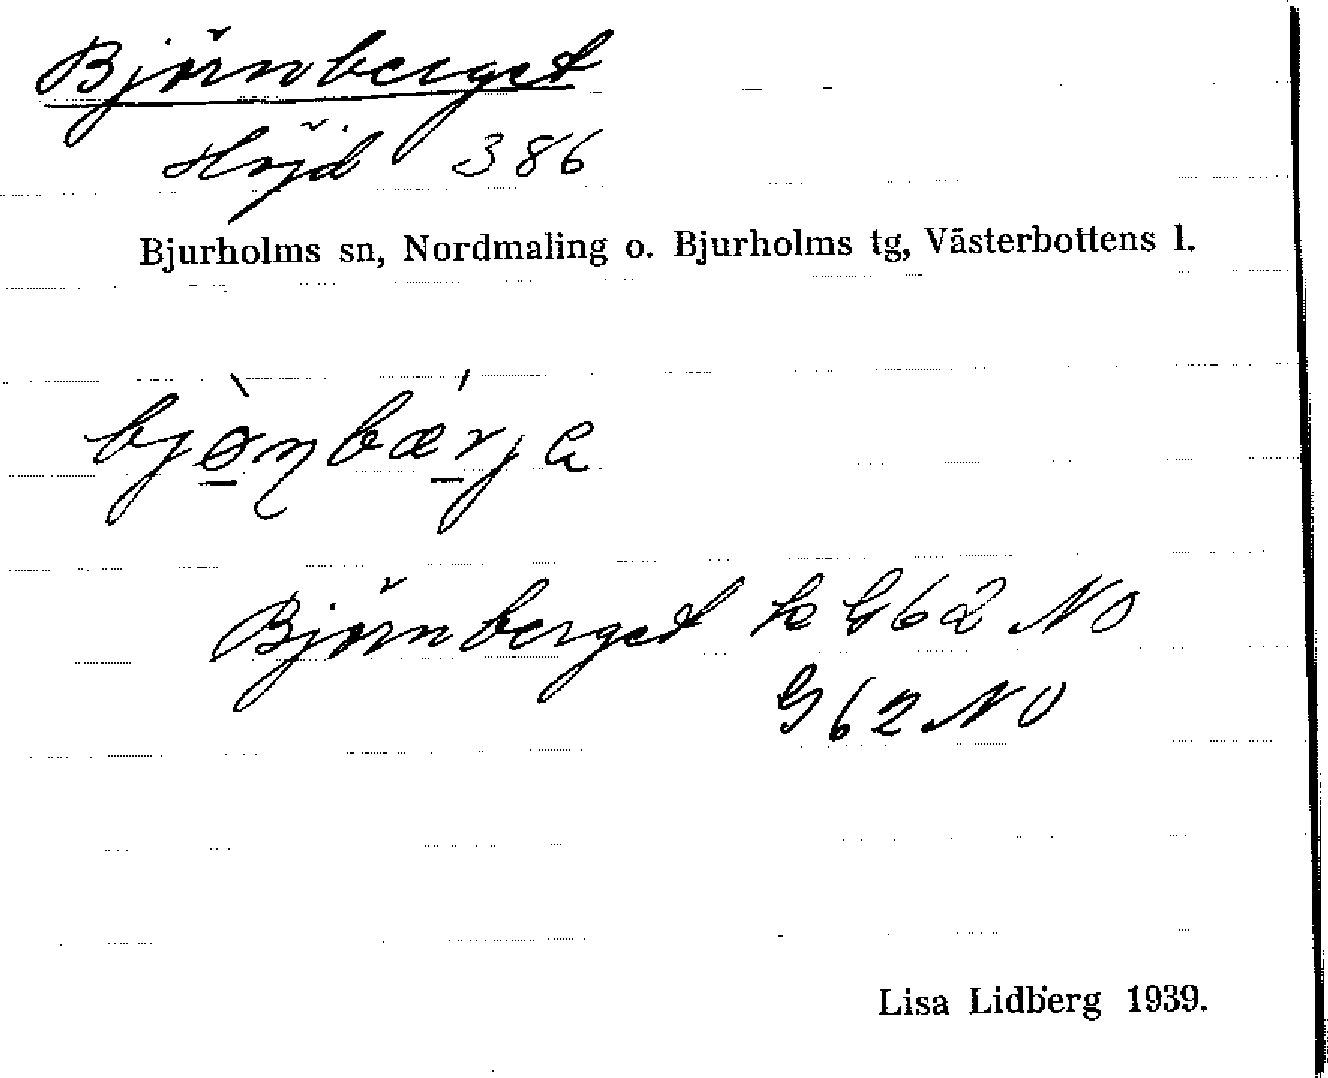 Björnberget
Höjd 386
Bjurholms sn, Nordmaling o. Bjurholms tg, Västerbottens l.
Björnberget k G 62 NO
G 62 NO
Lisa Lidberg 1939.